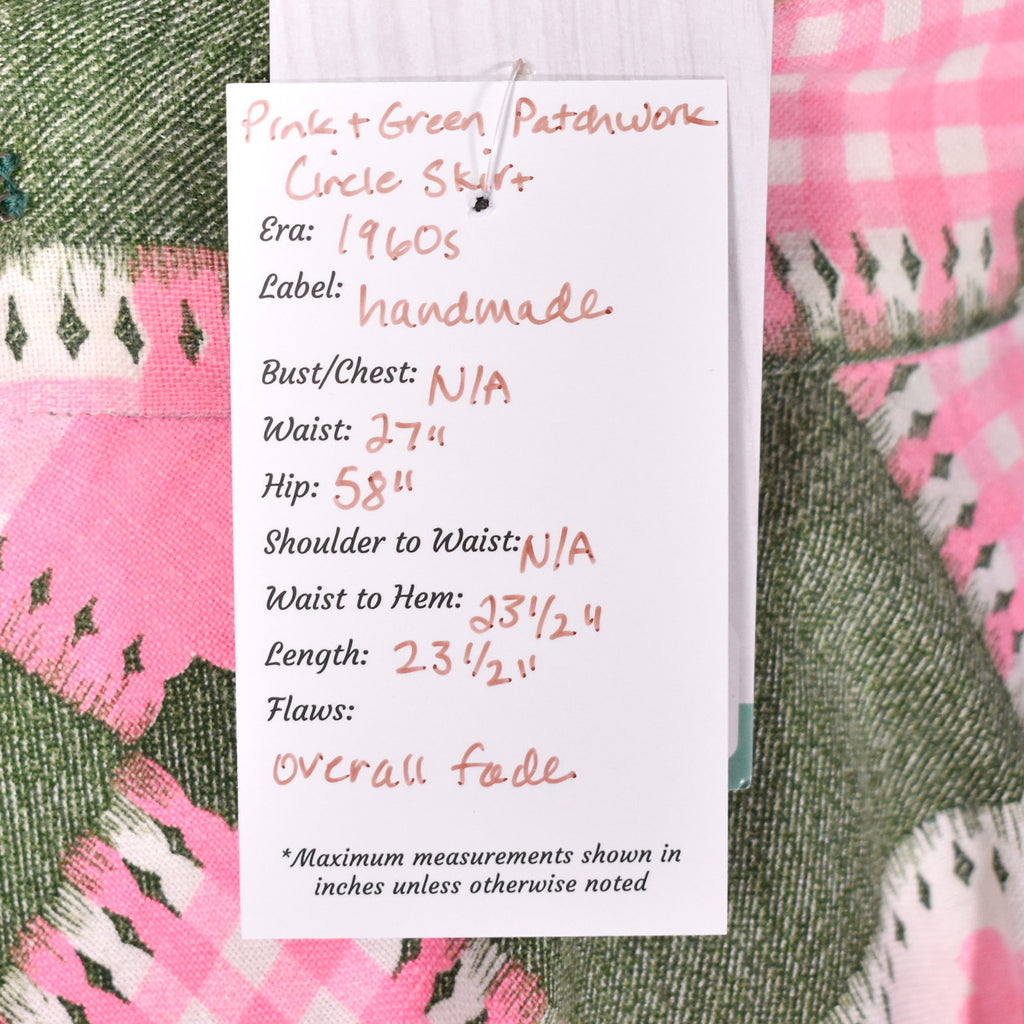 Pink + Green Patchwork
Circle Skirt
Era: 1960s
Label: handmade
Bust/Chest: N/A
Waist: 27"
Hip: 58"
Shoulder to Waist: N/A
Waist to Hem: 23 1/2"
Length: 23 1/2"
Flaws:
overall fade
*Maximum measurements shown in
inches unless otherwise noted